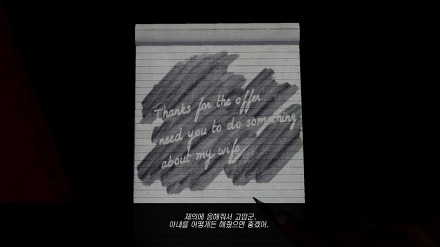 Thanks for the offer.
need you to do something
about my wife
제의에 응해줘서 고맙군.
아내를 어떻게든 해줬으면 좋겠어.